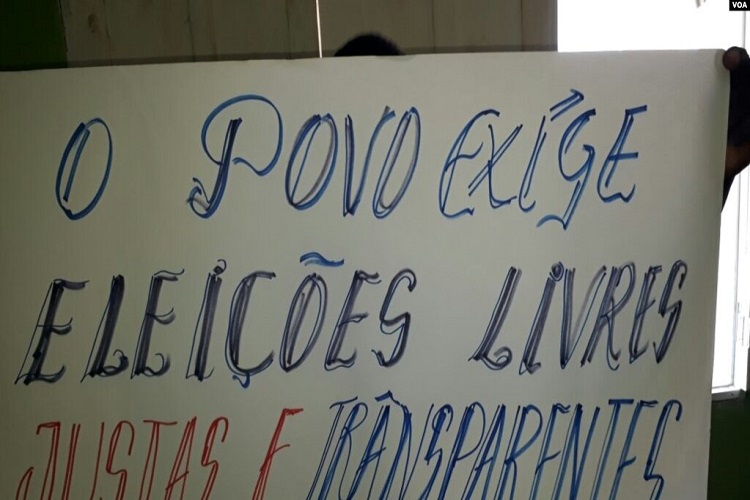 VOA
O POVO EXÍGE
ELEIÇÕES LIVRES
JUSTAS E TRÂNSPARENTES